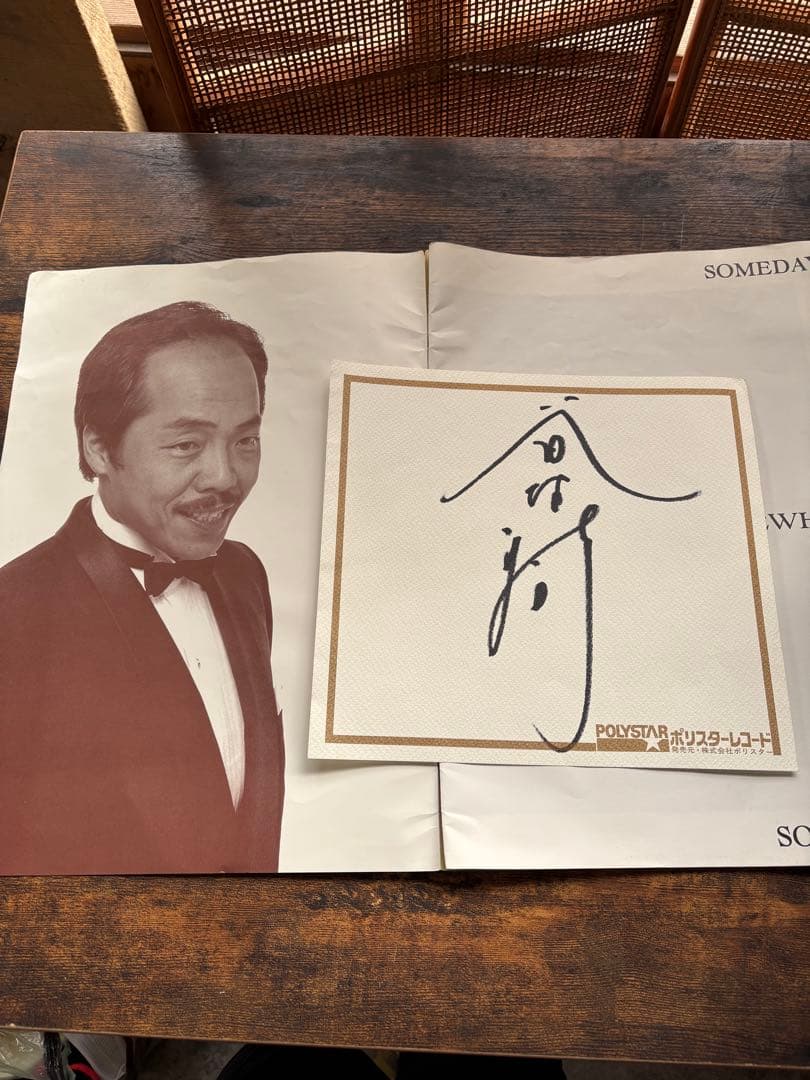 SOMEDAY
谷村新司
EWH
POLYSTAR ポリスターレコード
発売元・株式会社ポリスター
SO